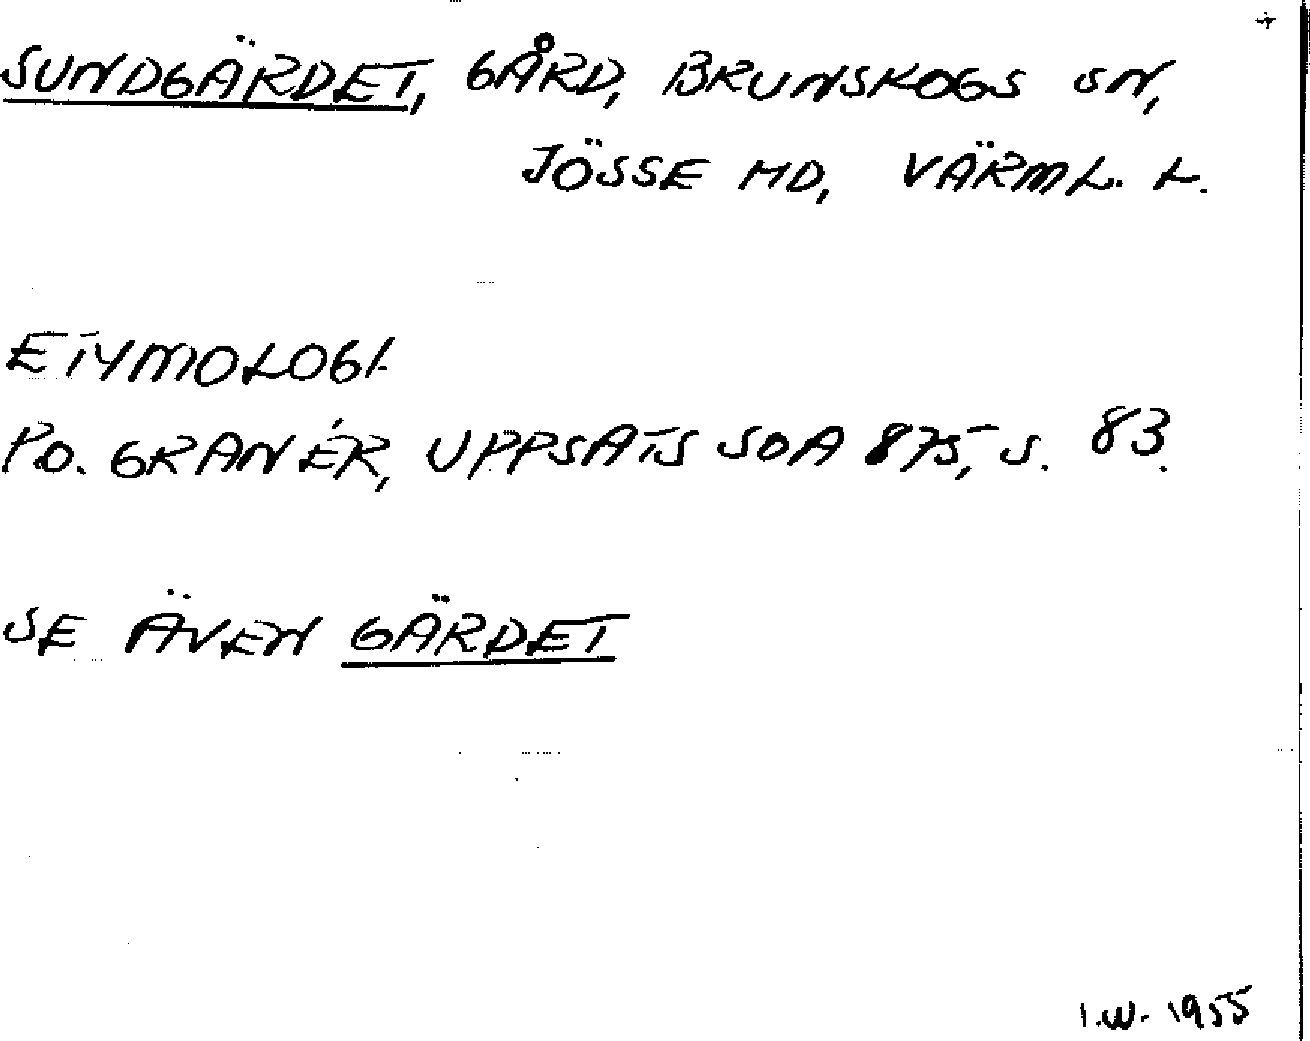 SUNDGÄRDET, GÅRD, BRUNSKOGS SN,
JÖSSE HD, VÄRML. L.
ETYMOLOGI.
P.O. GRANÉR, UPPSATS SOA 875, S. 83.
SE ÄVEN GÄRDET
I.W. 1955